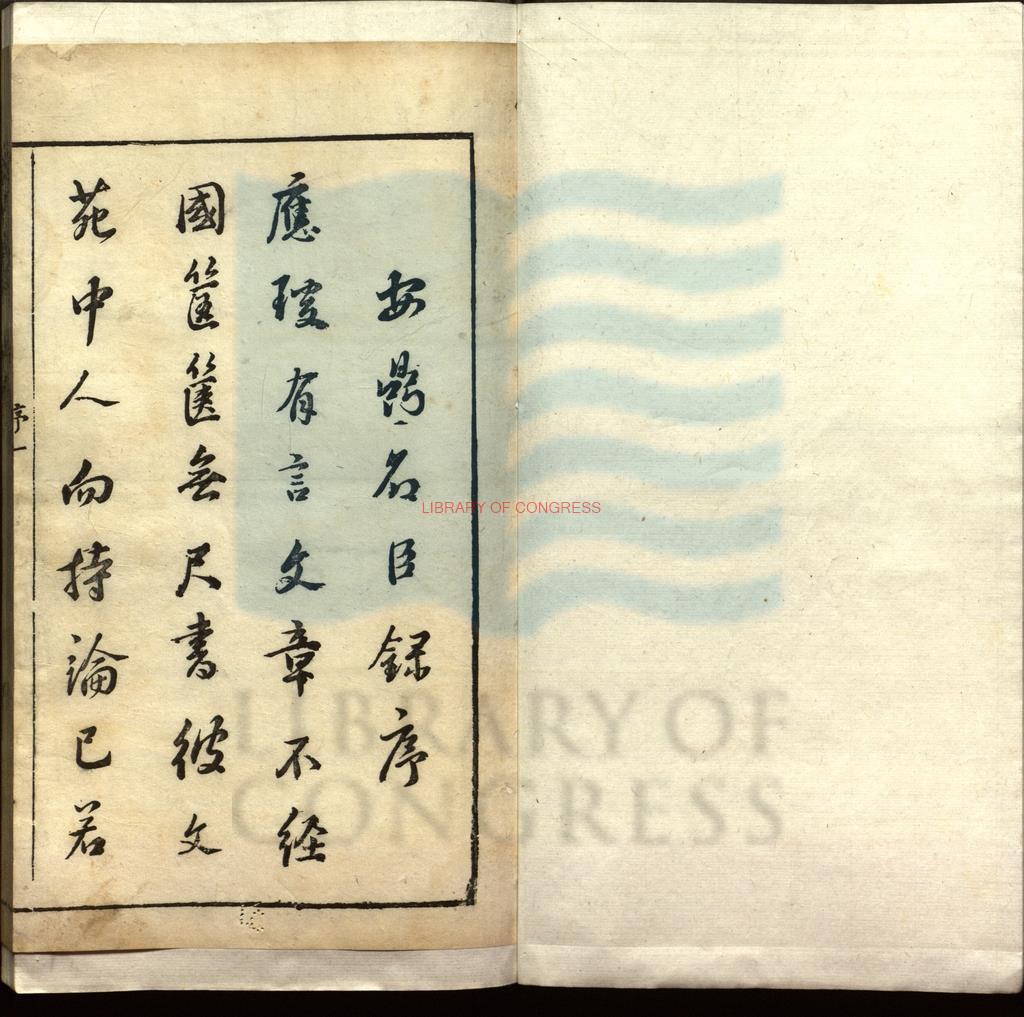 安驥名臣録序
應璩有言文章不経
國筐篋無尺書彼文
苑中人向持論已若
序一
LIBRARY OF CONGRESS
LIBRARY OF
CONGRESS